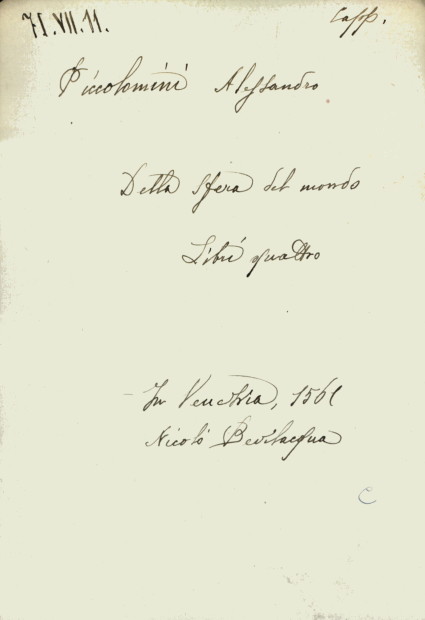 71.VII.11. Capp.
Piccolomini Alessandro
Della Sfera del mondo
Libri quattro
In Venetia, 1561
Nicolò Bevilacqua
C